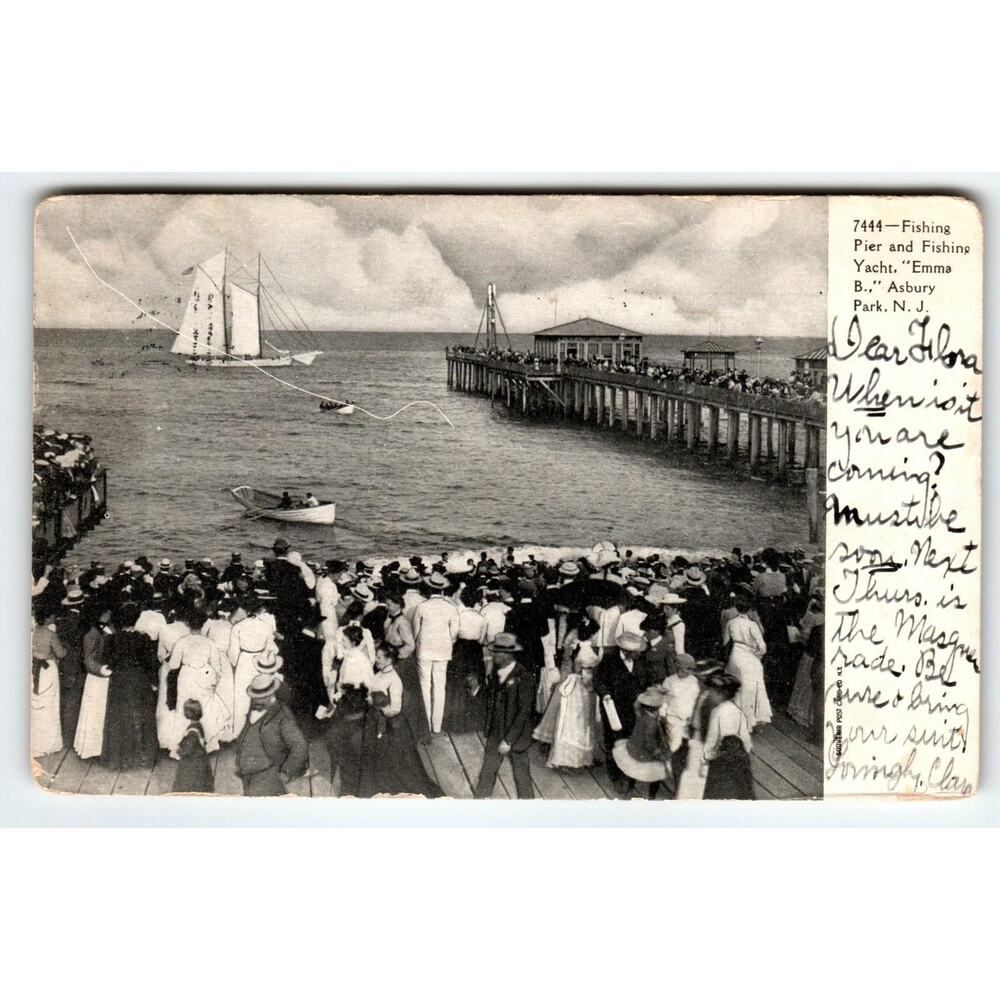 7444—Fishing
Pier and Fishing
Yacht, "Emma
B.," Asbury
Park, N. J.
Dear Flora
When is it
you are
coming?
Must be
soon. Next
Thurs. is
the Masque
rade. Be
sure & bring
Your suit.
Lovingly, Clara
SOUVENIR POST CARD CO. N.Y.